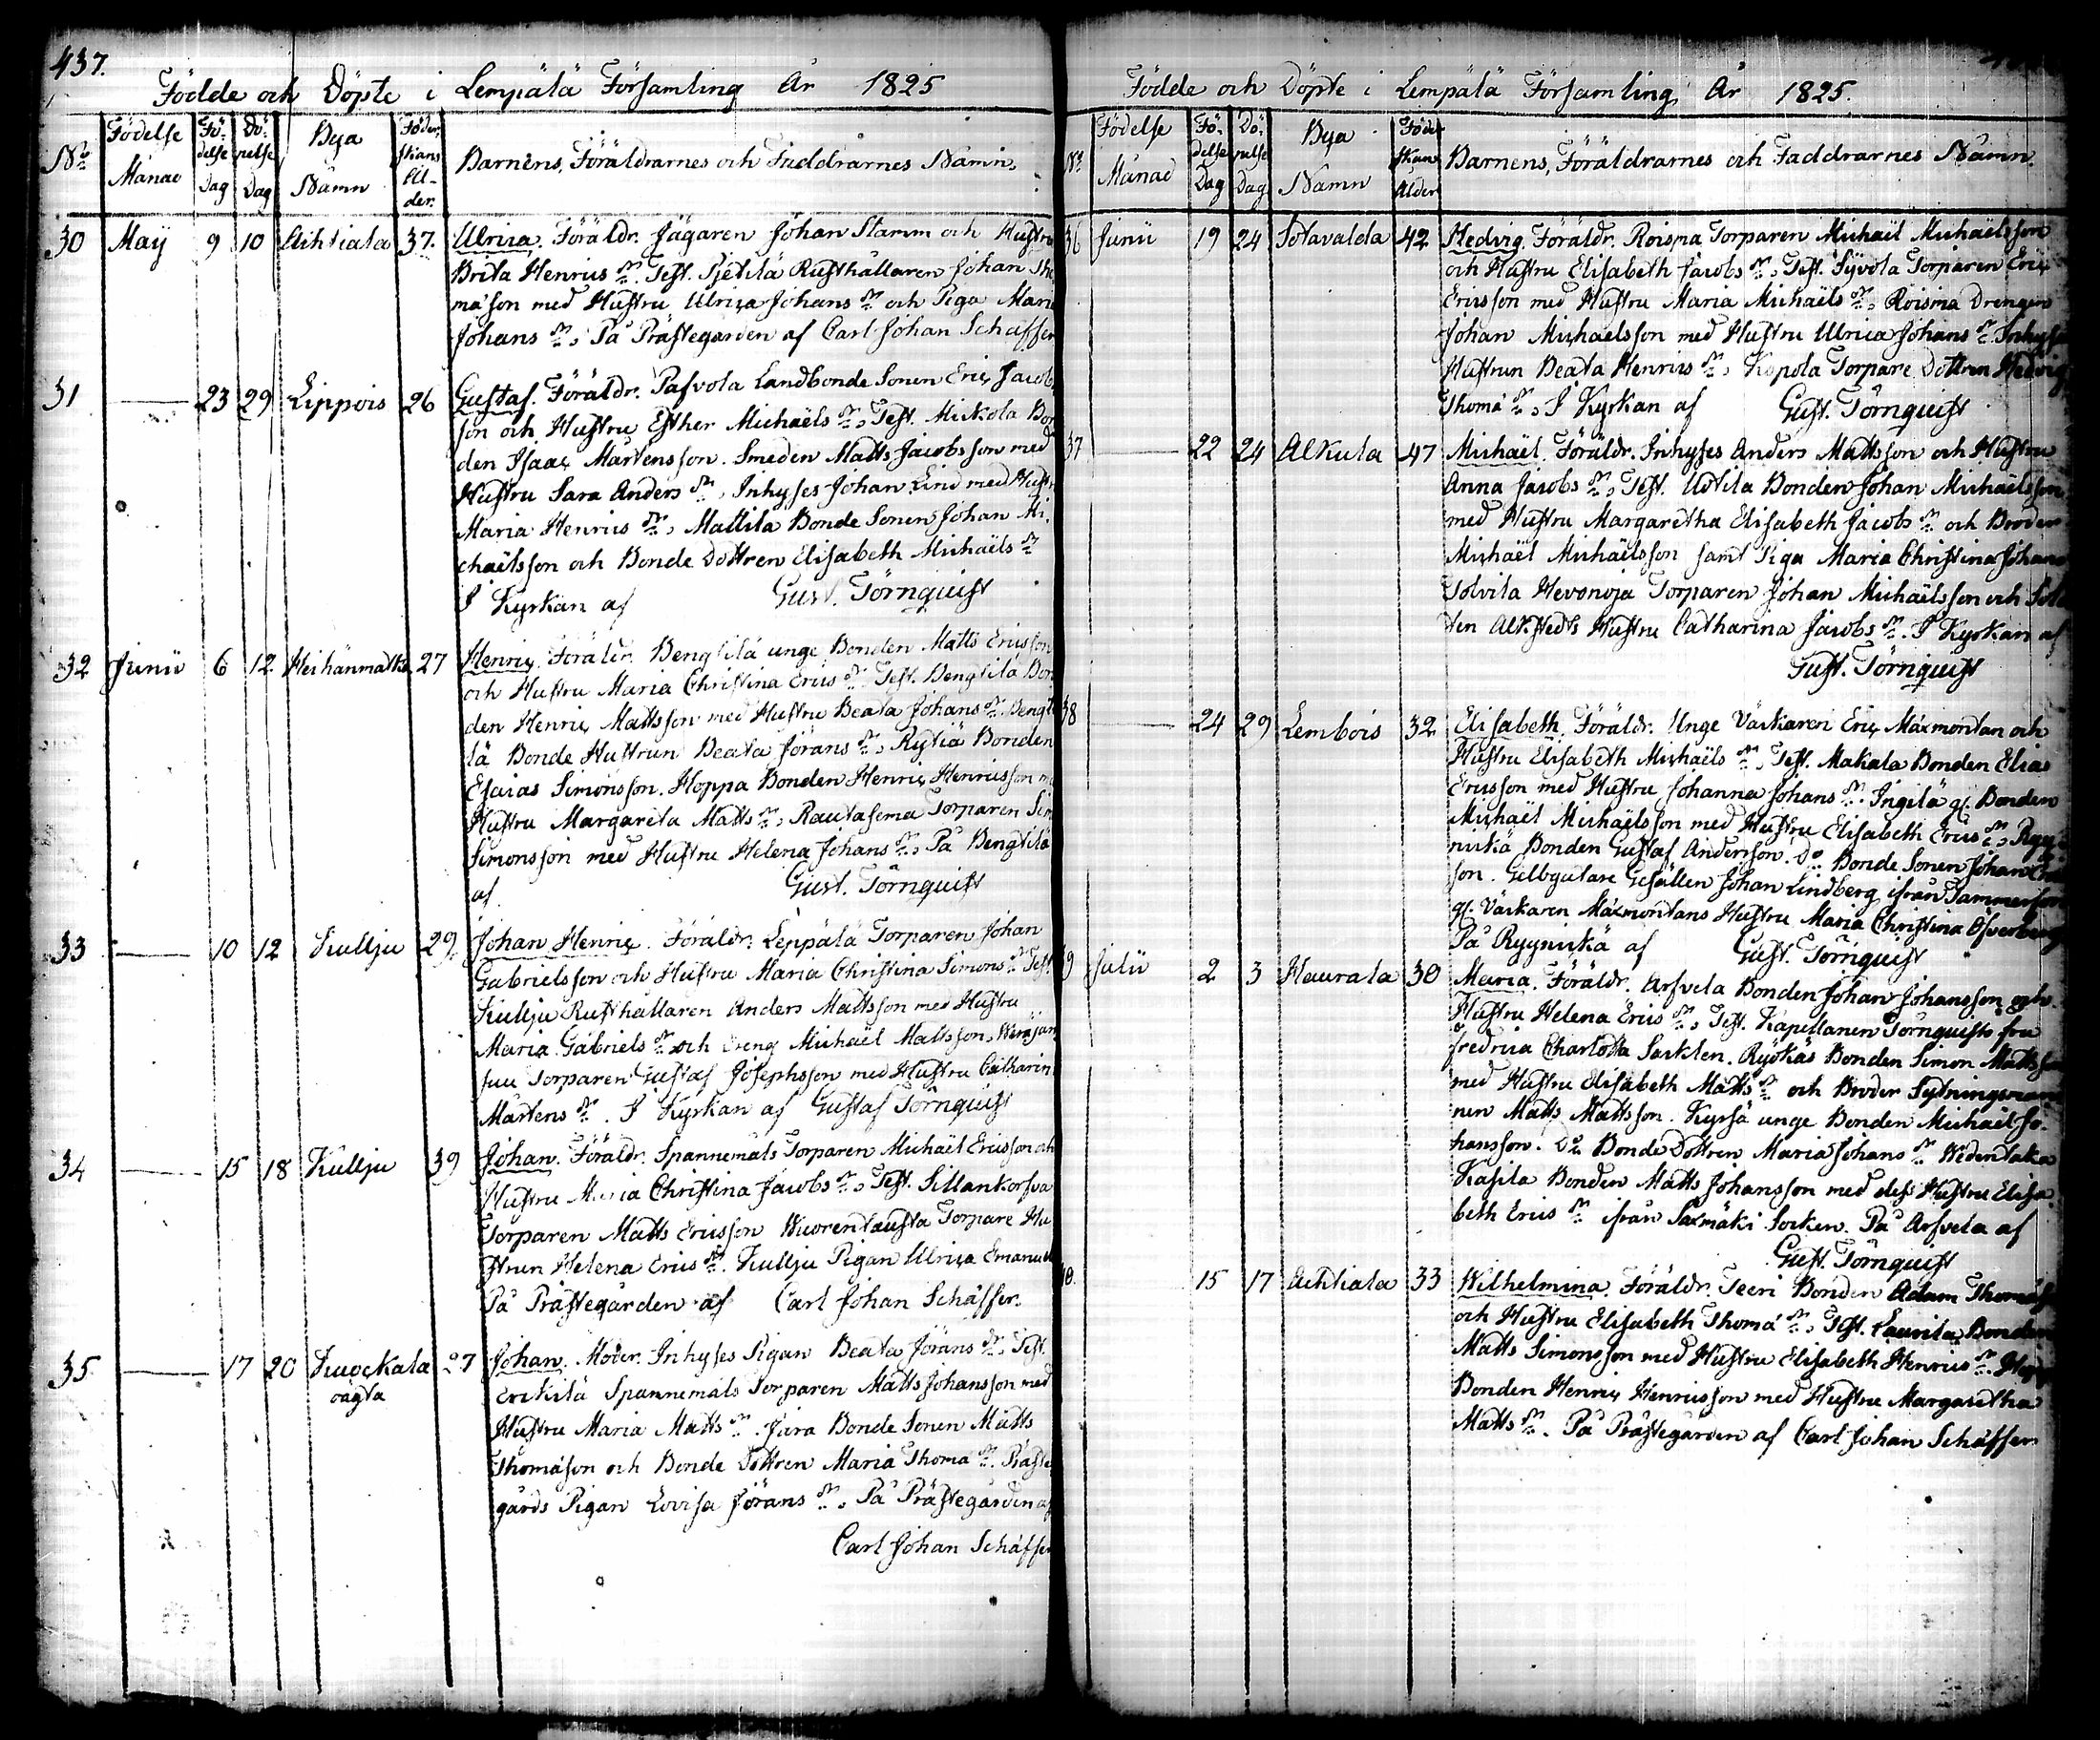 437.
Födde och Döpte i Lempälä Församling År 1825
No
Födelse Månad
Födelse Dag
Döpelse Dag
Bya Namn
Föderskans Ålder.
Barnens, Föräldrarnes och Faddrarnes Namn.
30 Maij 9 10 Aihtiala 37. Ulrica. Föräldr. Jägaren Johan Stamm och Hustru
Brita Henrics dr. Test. Pietilä Rusthållaren Johan Tho
masson med Hustru Ulrica Johans dr och Piga Maria
Johans dr. På Prästegården af Carl Johan Schäffer
31 — 23 29 Lippois 26 Gustaf. Föräldr. Pasvola Landbonde Sonen Eric Jacobs
son och Hustru Esther Michaëls dr. Test. Mickola Bon
den Isaac Mårtensson. Smeden Matts Jacobsson med
Hustru Sara Anders dr. Inhyses Johan Lind med Hustru
Maria Henrics dr. Mattila Bonde Sonen Johan Mi
chaëlsson och Bonde Dottren Elisabeth Michaëls dr
I Kyrkan af Gust. Törnquist
32 Junii 6 12 Heihänmatka 27 Henric. Föräldr. Bengtilä unge Bonden Matts Ericsson
och Hustru Maria Christina Erics dr. Test. Bengtilä Bon
den Henric Mattsson med Hustru Beata Johans dr. Bengti
lä Bonde Hustrun Beata Jörans dr. Rytiä Bonden
Esaias Simonsson. Hoppa Bonden Henric Henricsson m
Hustru Margareta Matts dr. Rautasema Torparen Sim
Simonsson med Hustru Helena Johans dr. På Bengtilä
af Gust. Törnquist
33 — 10 12 Kullju 29. Johan Henric. Föräldr. Leppälä Torparen Johan
Gabrielsson och Hustru Maria Christina Simons dr. Test.
Kullju Rusthållaren Anders Mattsson med Hustru
Maria Gabriels dr och Dreng Michaël Mattsson,
suu Torparen Gustaf Josephsson med Hustru Catharin
Mårtens dr. I Kyrkan af Gustaf Törnquist
34 — 15 18 Kullju 39 Johan. Föräldr. Spannemåls Torparen Michaël Ericsson och
Hustru Maria Christina Jacobs dr. Test. Sillankorfva
Torparen Matts Ericsson Wuorentausta Torpare Hu
strun Helena Erics dr. Kullju Pigan Ulrica Emanuels
På Prästegården af Carl Johan Schäffer.
35 — 17 20 Kuockala 27 Johan. Moder. Inhyses Pigan Beata Jörans dr. Test.
Erckilä Spannemåls Torparen Matts Johansson med
Hustru Maria Matts dr. Jura Bonde Sonen Matts
Thomasson och Bonde Dottren Maria Thoma dr. Präste
gårds Pigan Lovisa Jörans dr. På Prästegården af
Carl Johan Schäffer
Födde och Döpte i Lempälä Församling År 1825.
No
Födelse Månad
Födelse Dag
Döpelse Dag
Bya Namn
Föderskans Ålder
Barnens, Föräldrarnes och Faddrarnes Namn.
36 Junii 19 24 Sotavalda 42 Hedvig. Föräldr. Roisma Torparen Michaël Michaëlsson
och Hustru Elisabeth Jacobs dr. Test. Syvola Torparen Eric
Ericsson med Hustru Maria Michaëls dr. Roisma Drengen
Johan Michaëlsson med Hustru Ulrica Johans dr. Inhyses
Hustrun Beata Henrics dr. Kopola Torpare Dottren Hedvig
Thoma dr. I Kyrkan af Gust. Törnquist
37 — 22 24 Alkula 47 Michaël. Föräldr. Inhyses Anders Mattsson och Hustru
Anna Jacobs dr. Test. Uotila Bonden Johan Michaëlsson
med Hustru Margaretha Elisabeth Jacobs dr och Broder
Michaël Michaëlsson samt Piga Maria Christina Johans
Tolvila Hevonoja Torparen Johan Michaëlsson och Sold
ten Alkstedts Hustru Catharina Jacobs dr. I Kyrkan af
Gust. Törnquist
38 — 24 29 Lembois 32 Elisabeth. Föräldr. Unge Väckaren Eric Maxmontan och
Hustru Elisabeth Michaëls dr. Test. Makala Bonden Elias
Ericsson med Hustru Johanna Johans dr. Ingilä gl. Bonden
Michaël Michaëlsson med Hustru Elisabeth Erics dr. Ryg
niskä Bonden Gustaf Andersson. Do Bonde Sonen Johan
son. Gelbgjutare Gesällen Johan Lindberg ifrån Tammerfors
gl. Väckaren Maxmontans Hustru Maria Christina
På Rygniskä af Gust. Törnquist
39 Julii 2 3 Haurala 30 Maria. Föräldr. Arfvela Bonden Johan Johansson och
Hustru Helena Erics dr. Test. Kapellanen Törnquists fru
Fredrica Charlotta Sacklen. Ryökäs Bonden Simon Mattsson
med Hustru Elisabeth Matts dr och Broder Sytningsman
nen Matts Mattsson. Kyrsä unge Bonden Michaël Jo
hansson. Do Bonde Dottren Maria Johans dr. Wedentaka
Kasila Bonden Matts Johansson med dess Hustru Elisa
beth Erics dr ifrån Saxmäki Socken. På Arfvela af
Gust. Törnquist
40. 15 17 Achtiala 33 Wilhelmina. Föräldr. Teeri Bonden Adam Thomasson
och Hustru Elisabeth Thoma dr. Test. Laurila Bonden
Matts Simonsson med Hustru Elisabeth Henrics dr. Hoppa
Bonden Henric Henricsson med Hustru Margaretha
Matts dr. På Prästegården af Carl Johan Schäffer